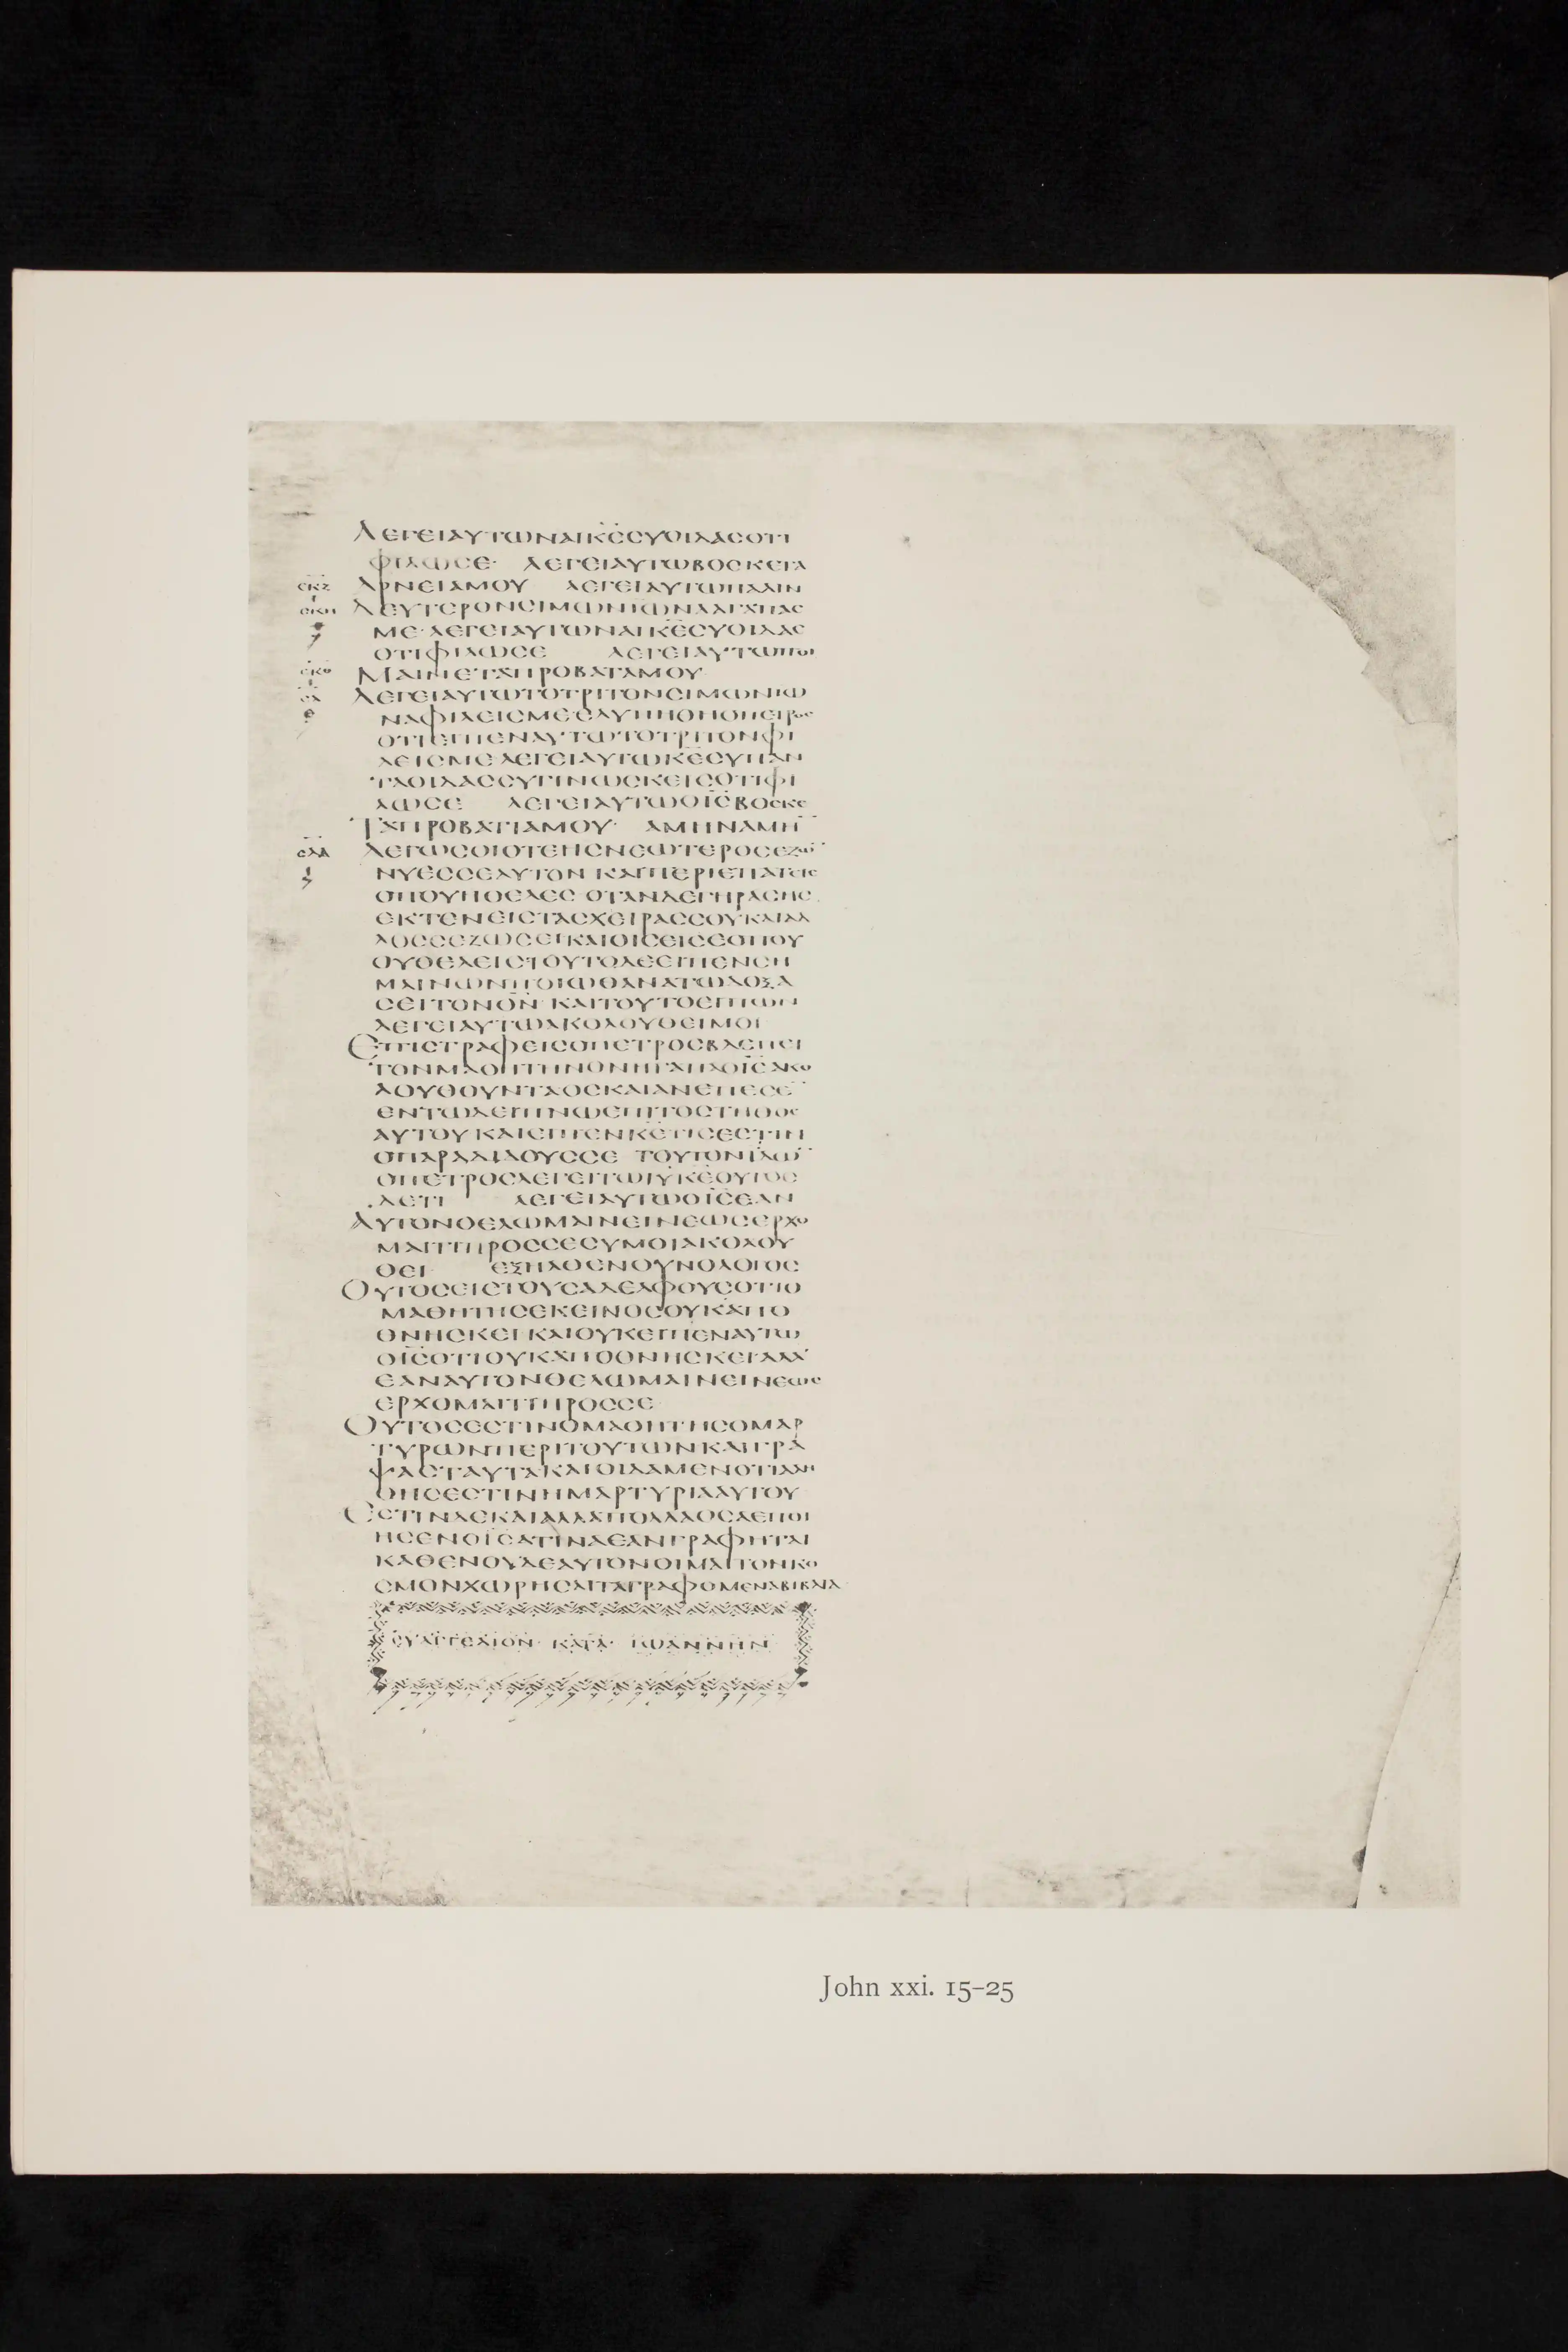 ΛΕΓΕΙΑΥΤΩΝΑΙΚ̅Ε̅ΣΥΟΙΔΑΣΟΤΙ
ΦΙΛΩΣΕ· ΛΕΓΕΙΑΥΤΩΒΟΣΚΕΤΑ
ΑΡΝΕΙΑΜΟΥ ΛΕΓΕΙΑΥΤΩΠΑΛΙΝ
ΔΕΥΤΕΡΟΝΣΙΜΩΝΙΩΝΑΑΓΑΠΑΣ
ΜΕ·ΛΕΓΕΙΑΥΤΩΝΑΙΚ̅Ε̅ΣΥΟΙΔΑΣ
ΟΤΙΦΙΛΩΣΕ ΛΕΓΕΙΑΥΤΩΠΟΙ
ΜΑΙΝΕΤΑΠΡΟΒΑΤΑΜΟΥ
ΛΕΓΕΙΑΥΤΩΤΟΤΡΙΤΟΝΣΙΜΩΝΙΩ
ΝΑΦΙΛΕΙΣΜΕΕΛΥΠΗΘΗΟΠΕΤΡΟΣ
ΟΤΙΕΙΠΕΝΑΥΤΩΤΟΤΡΙΤΟΝΦΙ
ΛΕΙΣΜΕΛΕΓΕΙΑΥΤΩΚ̅Ε̅ΣΥΠΑΝ
ΤΑΟΙΔΑΣΣΥΓΙΝΩΣΚΕΙΣΟΤΙΦΙ
ΛΩΣΕ ΛΕΓΕΙΑΥΤΩΟΙ̅Σ̅ΒΟΣΚΕ
ΤΑΠΡΟΒΑΤΙΑΜΟΥ· ΑΜΗΝΑΜΗ̅
ΛΕΓΩΣΟΙΟΤΕΗΣΝΕΩΤΕΡΟΣΕΖΩ̅
ΝΥΕΣΣΕΑΥΤΟΝΚΑΙΠΕΡΙΕΠΑΤΕΙΣ
ΟΠΟΥΗΘΕΛΕΣ·ΟΤΑΝΔΕΓΗΡΑΣΗΣ
ΕΚΤΕΝΕΙΣΤΑΣΧΕΙΡΑΣΣΟΥΚΑΙΑΛ
ΛΟΣΣΕΖΩΣΕΙΚΑΙΟΙΣΕΙΣΕΟΠΟΥ
ΟΥΘΕΛΕΙΣΤΟΥΤΟΔΕΕΙΠΕΝΣΗ
ΜΑΙΝΩΝΠΟΙΩΘΑΝΑΤΩΔΟΞΑ
ΣΕΙΤΟΝΘ̅Ν̅ ΚΑΙΤΟΥΤΟΕΙΠΩΝ
ΛΕΓΕΙΑΥΤΩΑΚΟΛΟΥΘΕΙΜΟΙ
ΕΠΙΣΤΡΑΦΕΙΣΟΠΕΤΡΟΣΒΛΕΠΕΙ
ΤΟΝΜΑΘΗΤΗΝΟΝΗΓΑΠΑΟΙ̅Σ̅ΑΚΟ
ΛΟΥΘΟΥΝΤΑΟΣΚΑΙΑΝΕΠΕΣΕ̅
ΕΝΤΩΔΕΙΠΝΩΕΠΙΤΟΣΤΗΘΟΣ
ΑΥΤΟΥΚΑΙΕΙΠΕΝΚ̅Ε̅ΤΙΣΕΣΤΙΝ
ΟΠΑΡΑΔΙΔΟΥΣΣΕ ΤΟΥΤΟΝΙΔΩ̅
ΟΠΕΤΡΟΣΛΕΓΕΙΤΩΙ̅Υ̅Κ̅Ε̅ΟΥΤΟΣ
ΔΕΤΙ ΛΕΓΕΙΑΥΤΩΟΙ̅Σ̅ΕΑΝ
ΑΥΤΟΝΘΕΛΩΜΑΙΝΕΙΝΕΩΣΕΡΧΟ
ΜΑΙΤΙΠΡΟΣΣΕΣΥΜΟΙΑΚΟΛΟΥ
ΘΕΙ ΕΞΗΛΘΕΝΟΥΝΟΛΟΓΟΣ
ΟΥΤΟΣΕΙΣΤΟΥΣΑΔΕΛΦΟΥΣΟΤΙΟ
ΜΑΘΗΤΗΣΕΚΕΙΝΟΣΟΥΚΑΠΟ
ΘΝΗΣΚΕΙ·ΚΑΙΟΥΚΕΙΠΕΝΑΥΤΩ
ΟΙ̅Σ̅ΟΤΙΟΥΚΑΠΟΘΝΗΣΚΕΙΑΛΛ
ΕΑΝΑΥΤΟΝΘΕΛΩΜΑΙΝΕΙΝΕΩΣ
ΕΡΧΟΜΑΙΤΙΠΡΟΣΣΕ
ΟΥΤΟΣΕΣΤΙΝΟΜΑΘΗΤΗΣΟΜΑΡ
ΤΥΡΩΝΠΕΡΙΤΟΥΤΩΝΚΑΙΓΡΑ
ΨΑΣΤΑΥΤΑΚΑΙΟΙΔΑΜΕΝΟΤΙΑΛΗ
ΘΗΣΕΣΤΙΝΗΜΑΡΤΥΡΙΑΑΥΤΟΥ
ΕΣΤΙΝΔΕΚΑΙΑΛΛΑΠΟΛΛΑΟΣΑΕΠΟΙ
ΗΣΕΝΟΙ̅Σ̅ΑΤΙΝΑΕΑΝΓΡΑΦΗΤΑΙ
ΚΑΘΕΝΟΥΔΕΑΥΤΟΝΟΙΜΑΙΤΟΝΚΟ
ΣΜΟΝΧΩΡΗΣΑΙΤΑΓΡΑΦΟΜΕΝΑΒΙΒΛΙΑ
ΕΥΑΓΓΕΛΙΟΝ· ΚΑΤΑ· ΙΩΑΝΝΗΝ
John xxi. 15–25